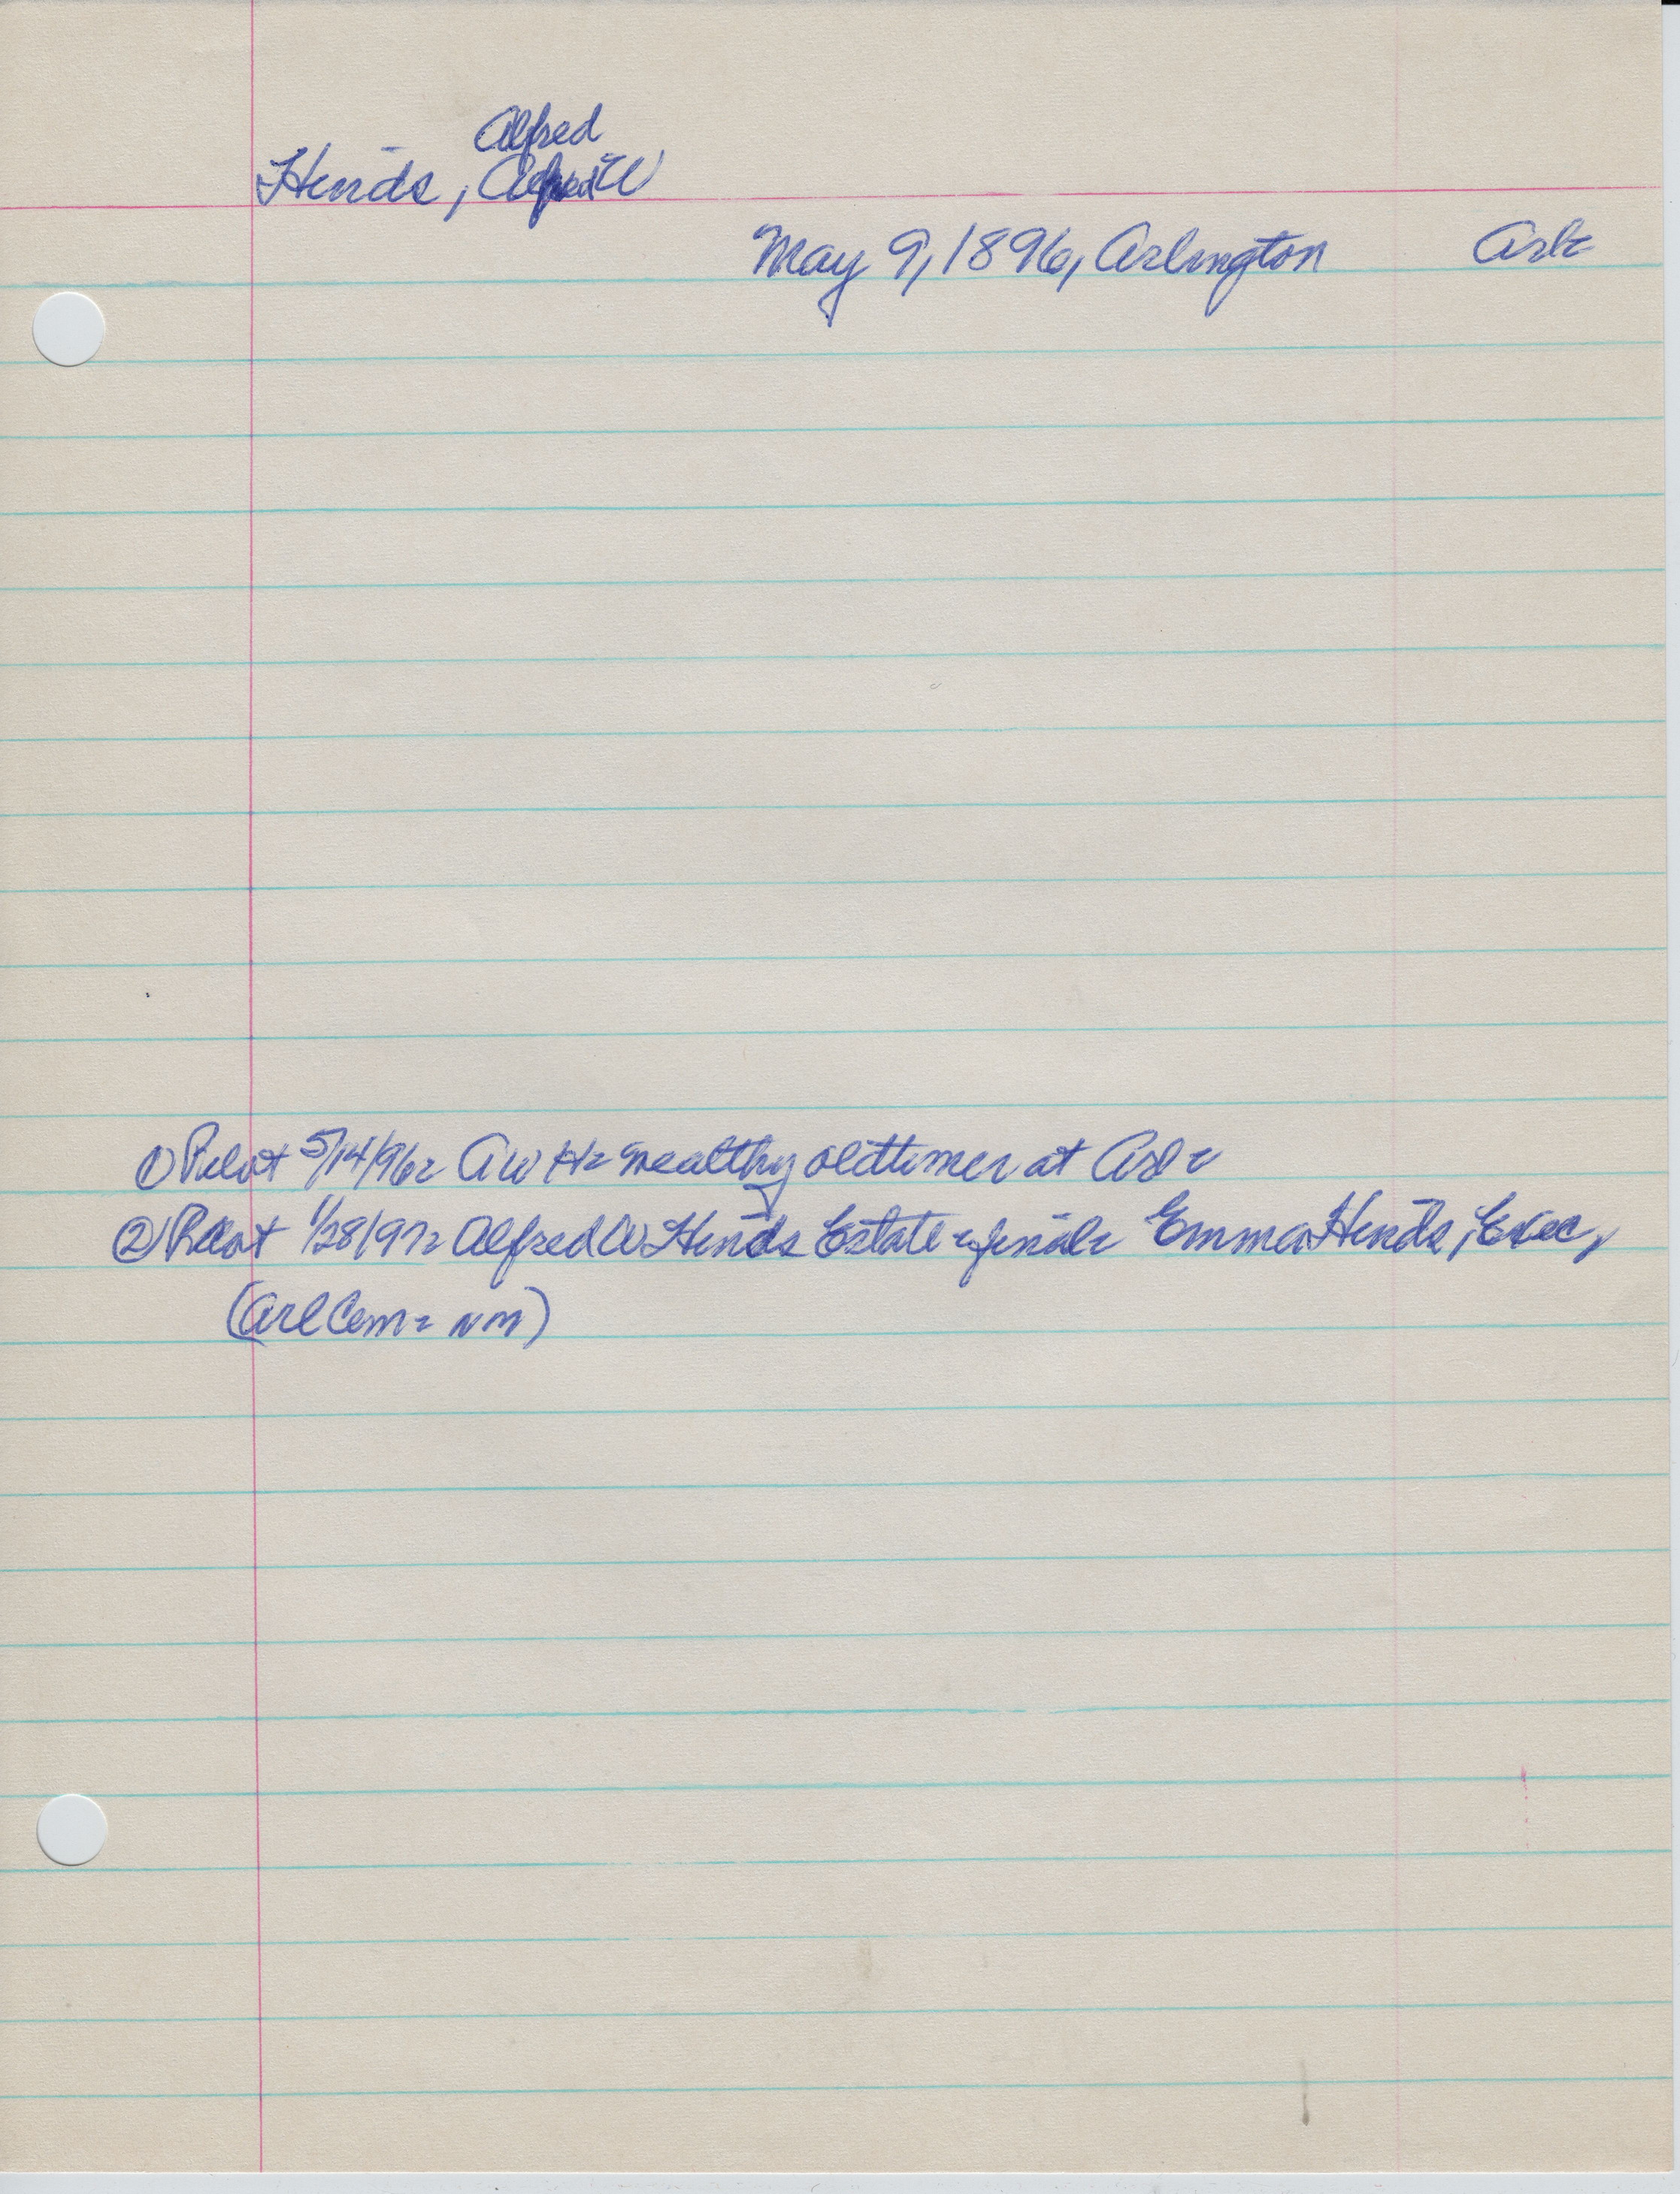 Alfred
Hinds, Alfred W
May 9, 1896, Arlington Arl=
① Pilot 5/14/96= AWH= wealthy oldtimer at Arl=
② Pilot 1/28/97= Alfred W Hinds Estate = final= Emma Hinds, Exec,
(Arl Cem= NM)